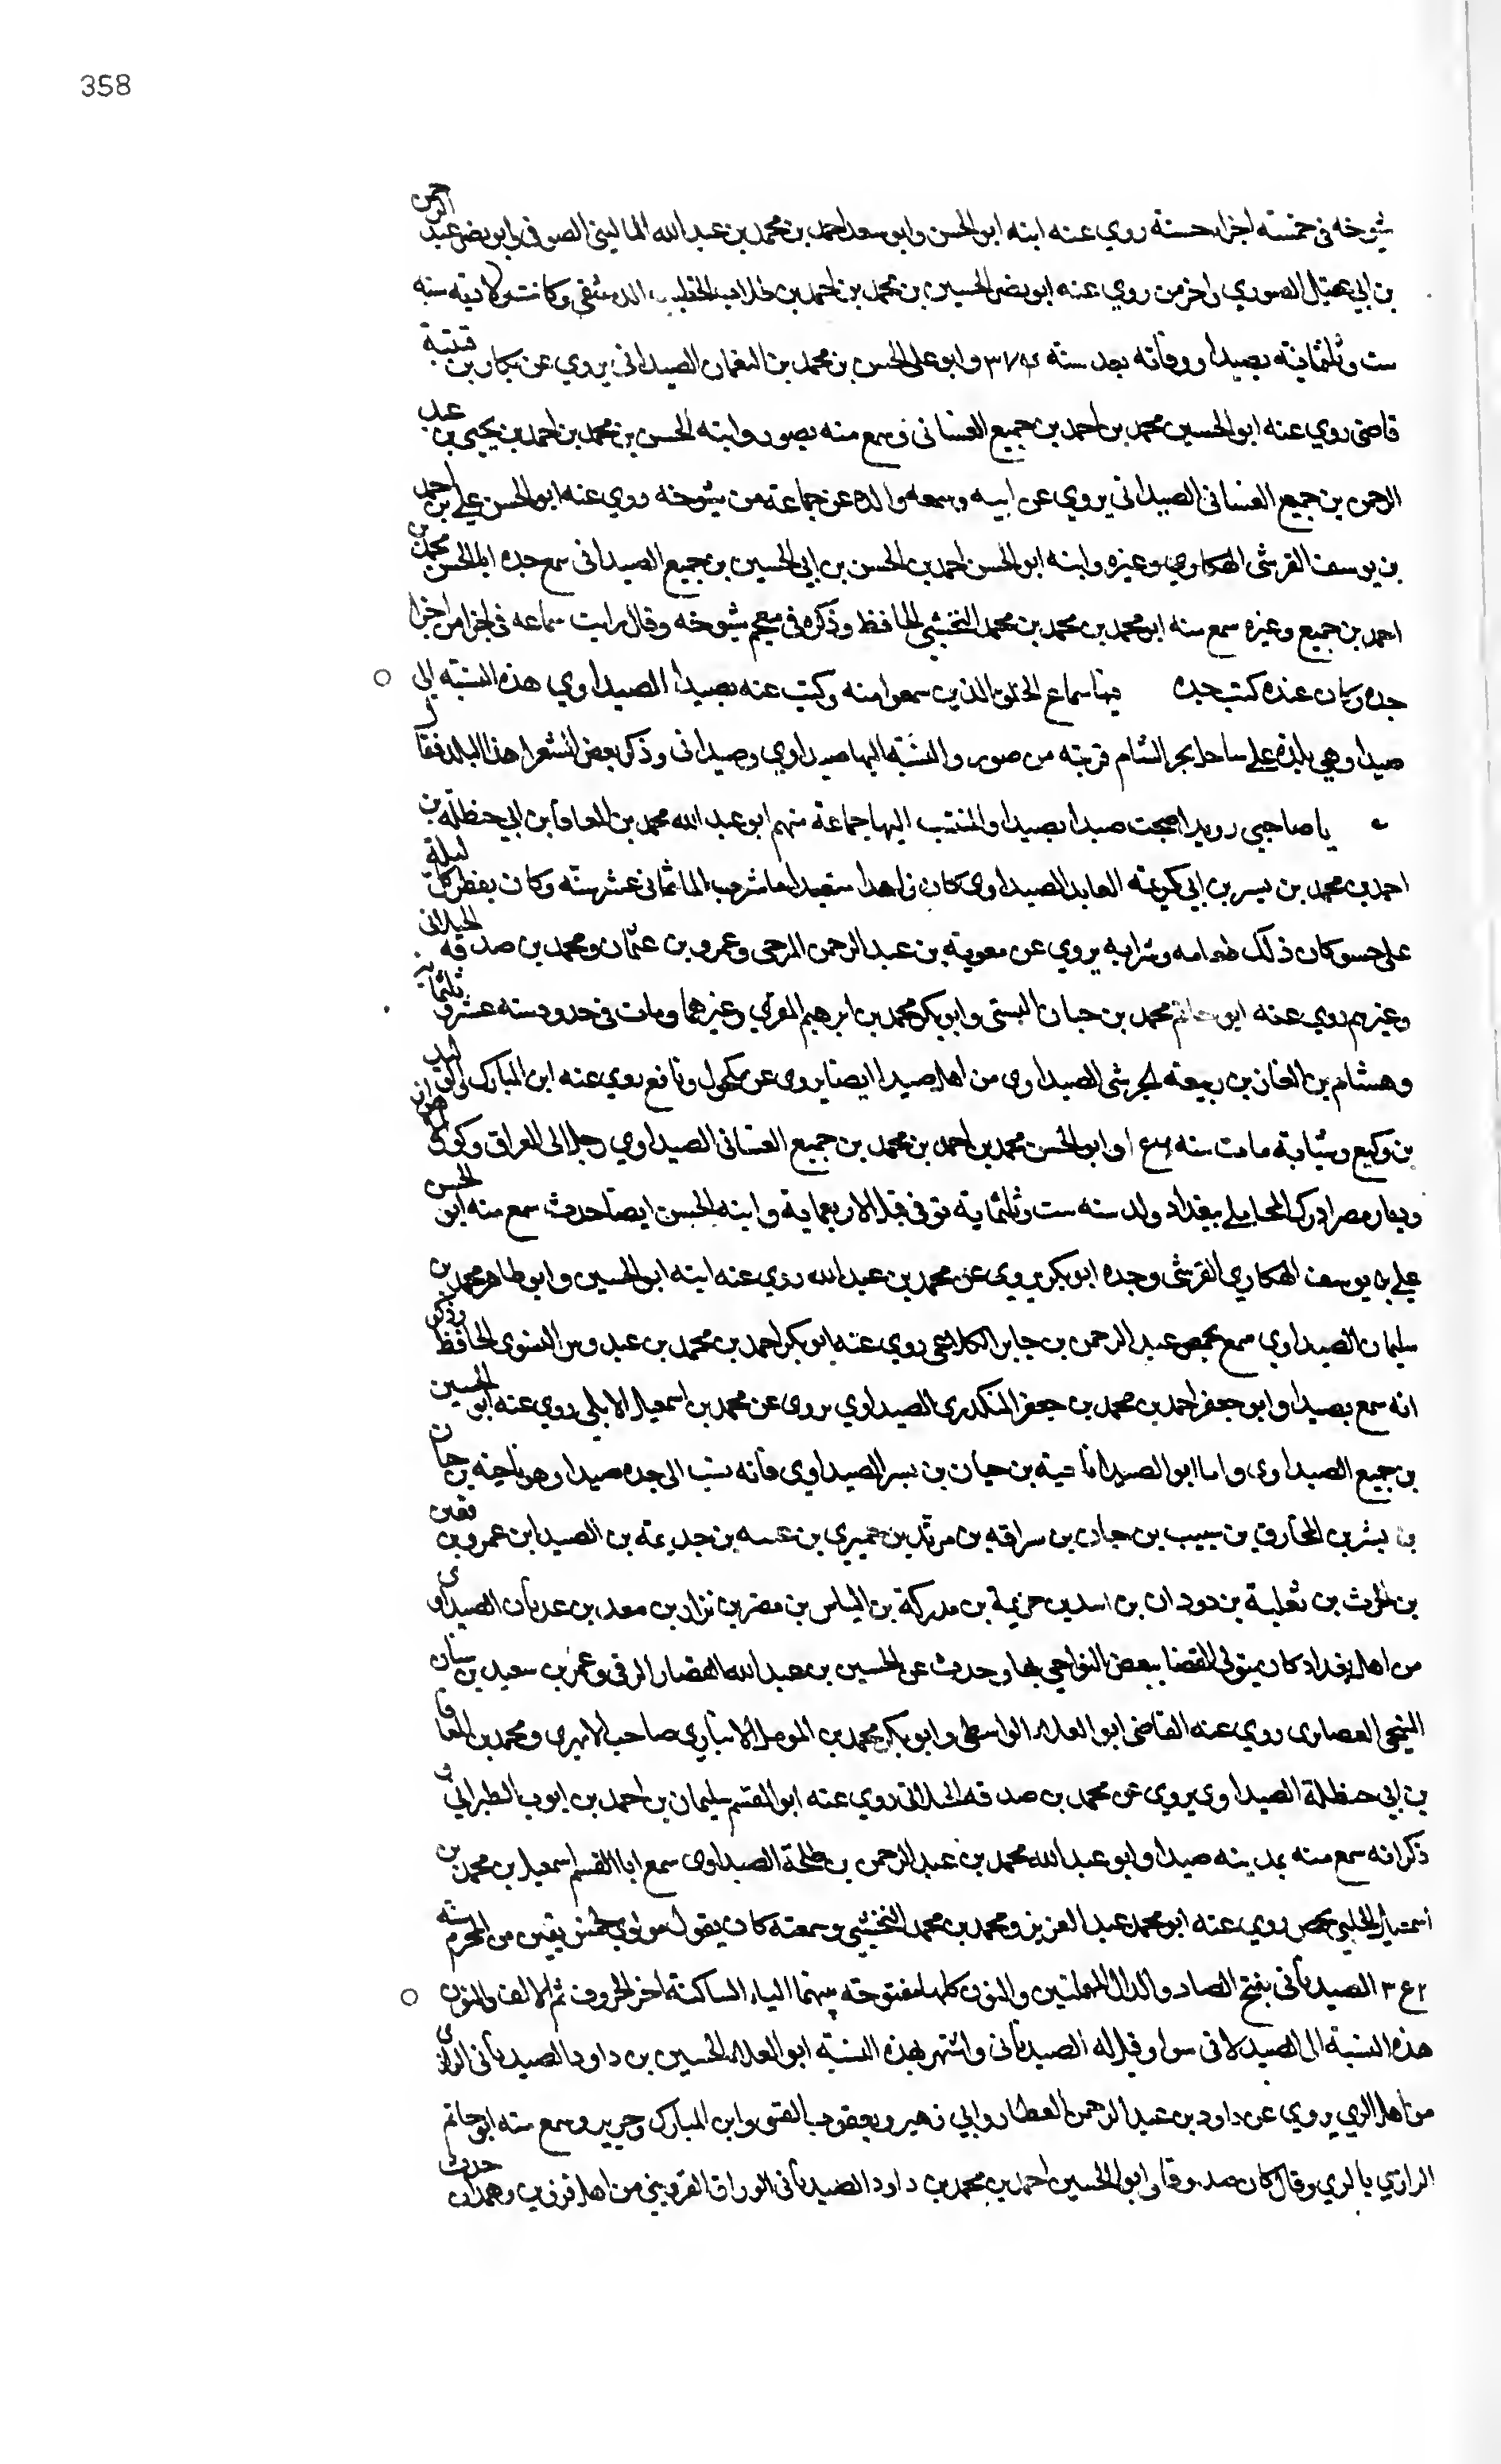 358
شيوخه في خمسة اجزاء حسنة روي عنه ابنه ابو الحسن وابو سعد احمد بن محمد بن عبد الله الماليني الصوفي وابو نصر عبد الرحمن
بن ابي عقيل الصوري واخر من روي عنه ابو نصر الحسين بن محمد بن احمد بن طلاب الخطيب الدمشقي وكانت ولادته سنة
ست وثلثماية بصيدا ووفاته بعد سنة وابو علي الحسن بن محمد بن النعمان الصيداني يروي عن بكار بن قتيبة
قاضي روي عنه ابو الحسين محمد بن احمد بن جميع الغساني وسمع منه بصور وابنه الحسن بن محمد بن احمد بن يحيي بن عبد
الرحمن بن جميع الغساني الصيداني يروي عن ابيه وسمعه والده عن جماعة من شيوخه روي عنه ابو الحسن علي بن احمد
بن يوسف القرشي الهكاري وغيره وابنه ابو الحسن احمد بن الحسن بن ابي الحسين بن جميع الصيداني سمع جده ابا الحسن محمد بن
احمد بن جميع وغيره سمع منه ابو محمد بن محمد بن محمد النخشبي الحافظ وذكره في معجم شيوخه وقال رايت سماعه في اجزا من اجزا
جده وكان عنده كتب جده فيها سماع الخلق الذين سمعوا منه وكتب عنه بصيدا الصيداوي هذه النسبة الي
صيدا وهي بلدة علي ساحل بحر الشام قريبة من صور والنسبة اليها صيداوي وصيداني وذكر بعض الشعرا هذا البلد فقال
يا صاحبي رويدا اصبحت صيدا بصيدا والمنتسب اليها جماعة منهم ابو عبد الله محمد بن المعافا بن ابي حنظلة بن
احمد بن محمد بن بسر بن ابي كريمة العابد الصيداوي كان زاهدا متعبدا ما شرب الما ثماني عشر سنة وكان يفطر كل ليلة
علي حسو كان ذلك طعامه وشرابه يروي عن معوية بن عبد الرحمن الرحبي وعمرو بن عثمان ومحمد بن صدقه الجبلاني
وغيرهم روي عنه ابو حاتم محمد بن حبان البستي وابو بكر محمد بن ابرهيم المقري وغيرهما ومات في حدود سنه عشر وثلثماية
وهشام بن الغاز بن ربيعة الجرشي الصيداوي من اهل صيدا ايضا يروي عن مكحول ونافع روي عنه ابن المبارك
بن وكيع وشبابة مات سنه وابو الحسن محمد بن احمد بن محمد بن جميع الغساني الصيداوي رحل الي العراق وكور الاهواز
وديار مصر ادرك المحاملي ببغداد ولد سنه ست وثلثماية توفي قبل الاربعماية وابنه الحسن ايضا حدث سمع منه ابو الحسن
علي بن يوسف الهكاري القرشي وجده ابو بكر يروي عن محمد بن عبد الله روي عنه ابنه ابو الحسين وابو طاهر محمد بن
سليمان الصيداوي سمع بحمص عبد الرحمن بن جابر الكلاعي روي عنه ابو بكر احمد بن محمد بن عبدوس النسوي الحافظ وذكر
انه سمع بصيدا وابو جعفر احمد بن محمد بن جعفر المنكدري الصيداوي يروي عن محمد بن اسمعيل الابلي روي عنه ابو الحسين
بن جميع الصيداوي واما ابو الصيدا ناحية بن حيان بن بسر الصيداوي فانه نسب الي جده صيدا وهو ناحية بن حيان
بن بشر بن المخارق بن سبيب بن حيان بن سراقه بن مرثد بن حميري بن عتبه بن جديمة بن الصيدا بن عمرو بن قعين
بن الحرث بن ثعلبة بن دودان بن اسد بن خزيمة بن مدركة بن الياس بن مضر بن نزار بن معد بن عدنان الصيداوي
من اهل بغداد كان يتولي القضا ببعض النواحي بها وحدث عن الحسين بن عبد الله القصار الرقي وعمر بن سعيد بن سنان
المنبجي روي عنه القاضي ابو العلاء الواسطي وابو بكر محمد بن المومل الانباري صاحب الابهري ومحمد بن المعافا
بن ابي حنظلة الصيداوي يروي عن محمد بن صدقه الجبلاني روي عنه ابو القسم سليمان بن احمد بن ايوب الطبراني
ذكر انه سمع منه بمدينه صيدا وابو عبد الله محمد بن عبد الرحمن بن طلحة الصيداوي سمع ابا القسم اسمعيل بن محمد بن
اسمعيل الحلبي بحمص روي عنه ابو محمد عبد العزيز ومحمد بن محمد النخشبي وسمعته كان يقول مولدي لخمس بقين من المحرم سنه
الصيدناني بفتح الصاد والدال المهملتين والنون كلها مفتوحة بينهما الياء الساكنة اخر الحروف ثم الالف والنون
هذه النسبة الي الصيدلاني سوا وقيل له الصيدناني واشتهر بهذه النسبة ابو العلاء الحسين بن داود الصيدناني الرازي
من اهل الري يروي عن داود بن عبد الرحمن العطار وابي زهير ويعقوب القمي وابن المبارك وجرير وسمع منه ابو حاتم
الرازي بالري وقال كان صدوقا وابو الحسين احمد بن محمد بن داود الصيدناني الوراق القزويني من اهل قزوين وهمدان حدث